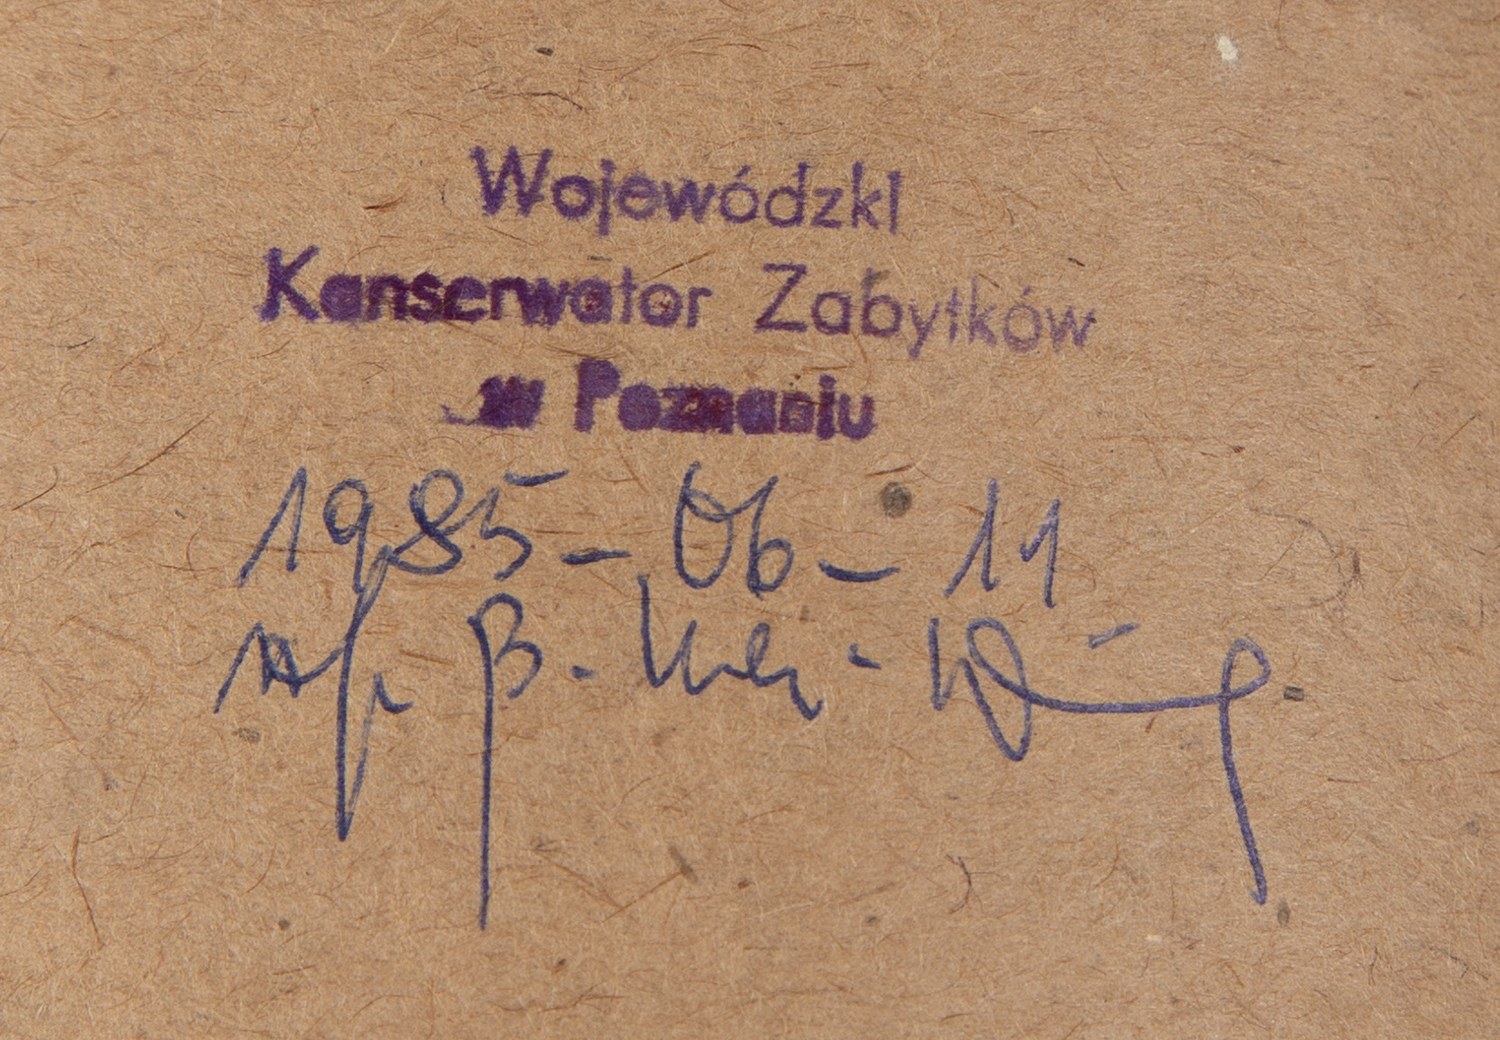 Wojewódzki
Konserwator Zabytków
w Poznaniu
1985-06-11